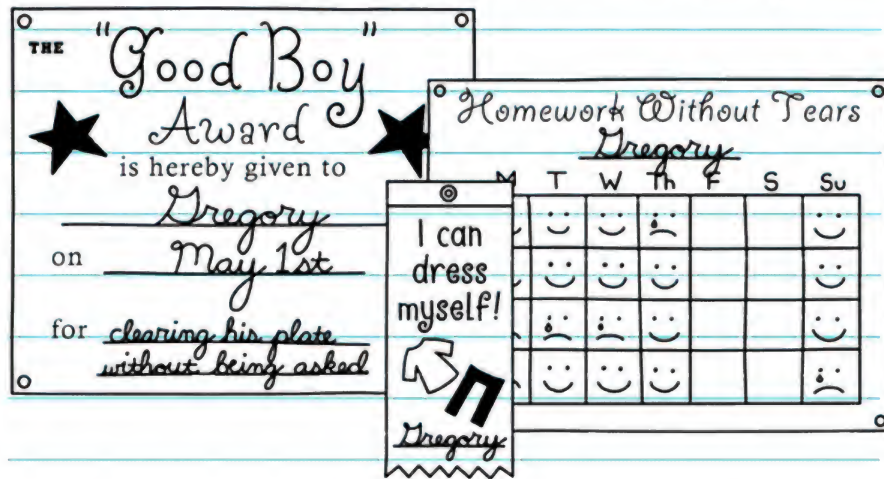 THE "Good Boy"
Award
is hereby given to
Gregory
on May 1st
for clearing his plate
without being asked
Homework Without Tears
Gregory
M T W Th F S Su
I can
dress
myself!
Gregory